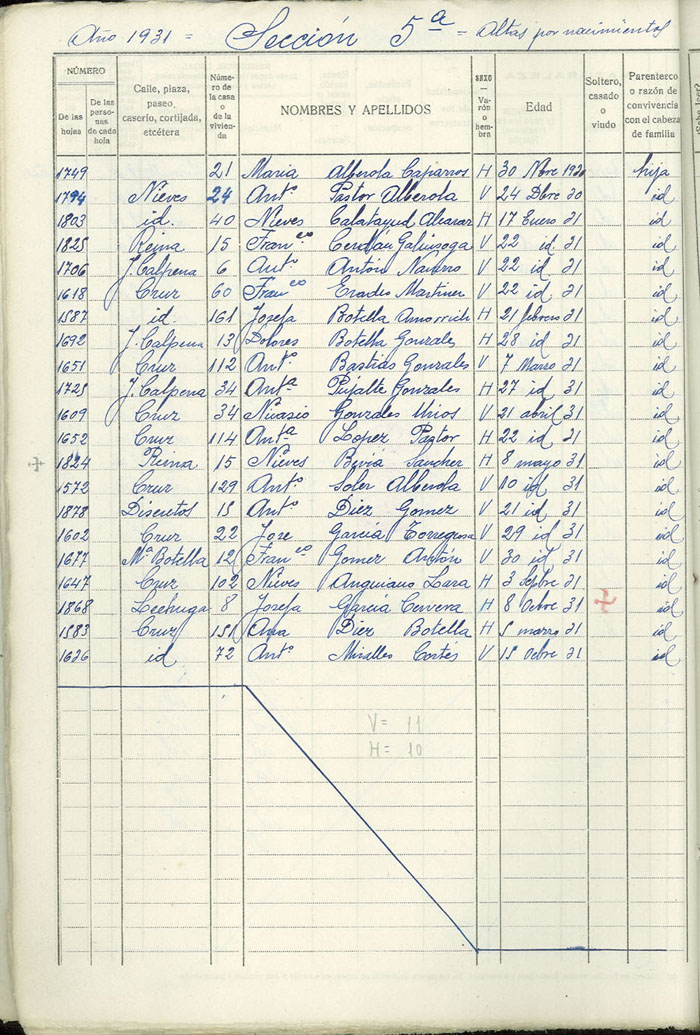 Año 1931 = Sección 5ª = Altas por nacimientos
NÚMERO
De las hojas
De las personas de cada hoja
Calle, plaza, paseo, caserío, cortijada, etcétera
Número de la casa o de la vivienda
NOMBRES Y APELLIDOS
SEXO — Varón o hembra
Edad
Soltero, casado o viudo
Parentesco o razón de convivencia con el cabeza de familia
1749 21 Maria Alberola Caparros H 30 Nbre 1930 hija
1794 Nieves 24 Antº Pastor Alberola V 24 Dbre 30 id
1803 id. 40 Nieves Calatayud Alcaraz H 17 Enero 31 id
1825 Reina 15 Franco Cerdán Galiusoga V 22 id 31 id
1706 J. Calpena 6 Antº Antón Navarro V 22 id 31 id
1618 Cruz 60 Franco Eradio Martinez V 22 id 31 id
1587 id. 161 Josefa Botella Amorrich H 21 febrero 31 id
1692 J. Calpena 13 Dolores Botella Gonzales H 28 id 31 id
1651 Cruz 112 Antº Bastida Gonzales V 7 Marzo 31 id
1725 J. Calpena 34 Antª Pujalte Gonzales H 27 id 31 id
1609 Cruz 34 Nicasio Gonzales V 21 abril 31 id
1652 Cruz 114 Antª Lopez Pastor H 22 id 31 id
1824 Reina 15 Nieves Bevia Sanchez H 8 mayo 31 id
1572 Cruz 129 Antº Soler Alberola V 10 id 31 id
1878 Discretos 15 Antº Diez Gomez V 21 id 31 id
1602 Cruz 22 Jose Garcia Torregrosa V 29 id 31 id
1677 Mª Botella 12 Franco Gomez Antón V 30 id 31 id
1647 Cruz 102 Nieves Anguiano Lara H 3 Sepbre 31 id
1868 Lechuga 8 Josefa Garcia Cervera H 8 Octbre 31 id
1583 Cruz 151 Ana Diez Botella H 5 marzo 31 id
1626 id 72 Antº Miralles Cortés V 15 Octbre 31 id
V = 11
H = 10